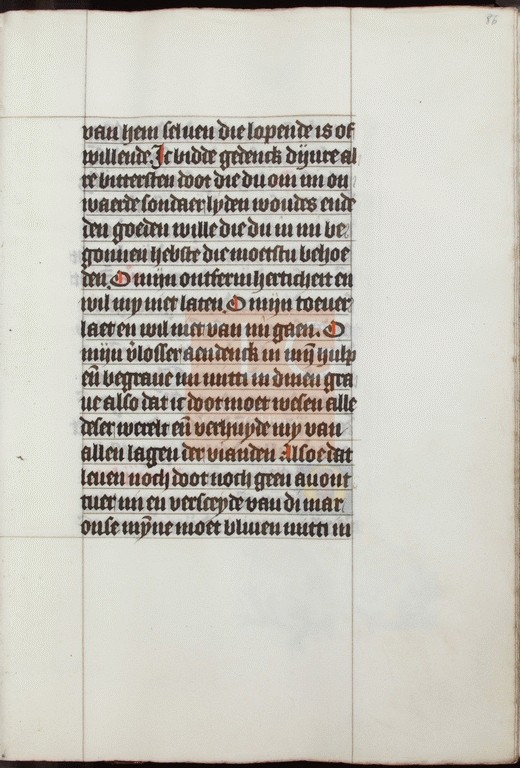 86
van hem seluen die lopende is of
willende. Ic bidde gedenck dijnre al
re bittersten doot die du om mi on
waerde sondaer lyden woudes ende
den goeden wille die du in mi be
gonnen hebste die moetstu behoe
den. O mijn ontfermherticheit en
wil my niet laten. O mijn toeuer
laet en wil niet van mi gaen. O
mijn v̄losser aendenck in mȳ hulp
eñ begraue mi mitti in dinen gra
ue also dat ic doot moet wesen alle
deser werelt eñ verhuyde my van
allen lagen der vianden. Alsoe dat
leuen noch doot noch geen auont
tuer mi en versceyde van di mar
onse mȳne moet bliuen mitti in